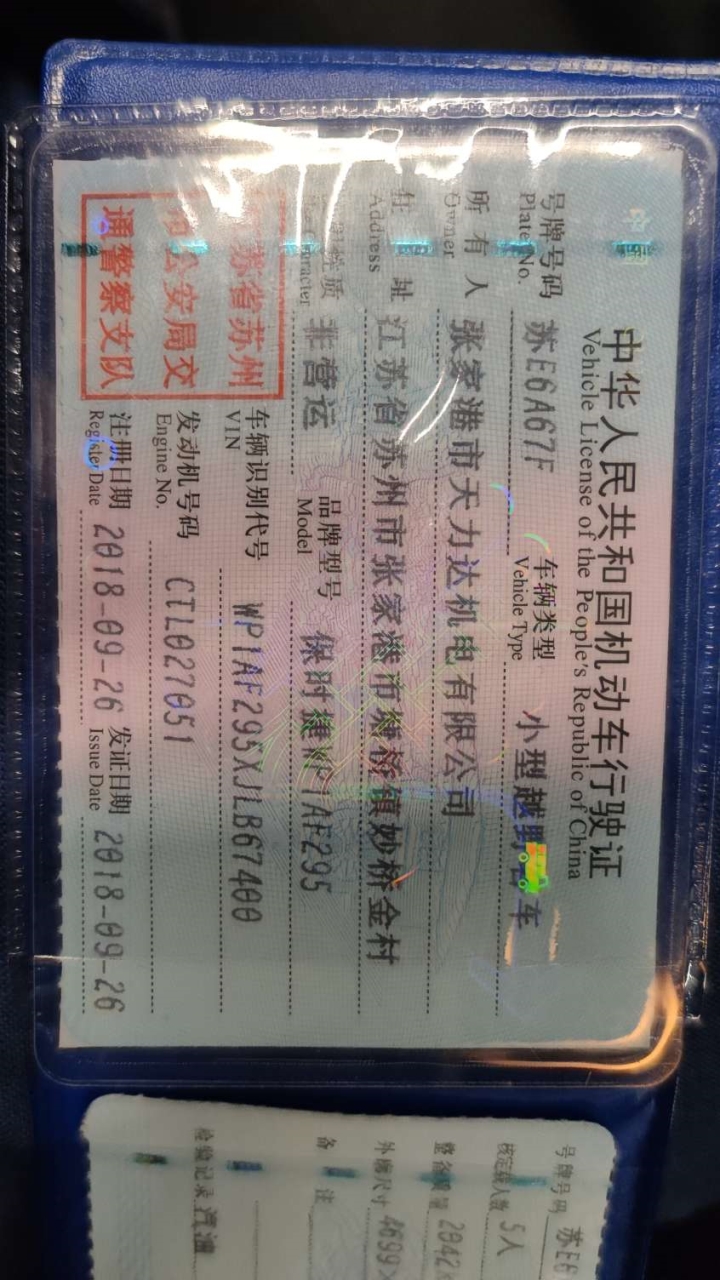 中华人民共和国机动车行驶证
Vehicle License of the People's Republic of China
号牌号码 苏E6A67F 车辆类型 小型越野客车
Plate No. Vehicle Type
所有人 张家港市天力达机电有限公司
Owner
住址 江苏省苏州市张家港市塘桥镇妙桥金村
Address
性质 非营运 品牌型号 保时捷WP1AF295
Character Model
江苏省苏州
市公安局交
通警察支队
车辆识别代号 WP1AF295XJLB67400
VIN
发动机号码 CTL027051
Engine No.
注册日期 2018-09-26 发证日期 2018-09-26
Register Date Issue Date
号牌号码 苏E6
核定载人数 5人
整备质量 2042k
外廓尺寸 4699×
备注
检验记录 汽油